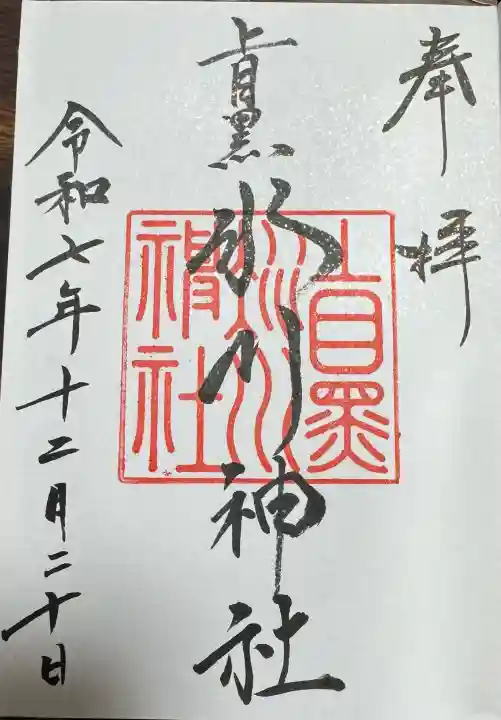 奉拝
上目黒
氷川神社
上目黒
氷川
神社
令和七年十二月二十日